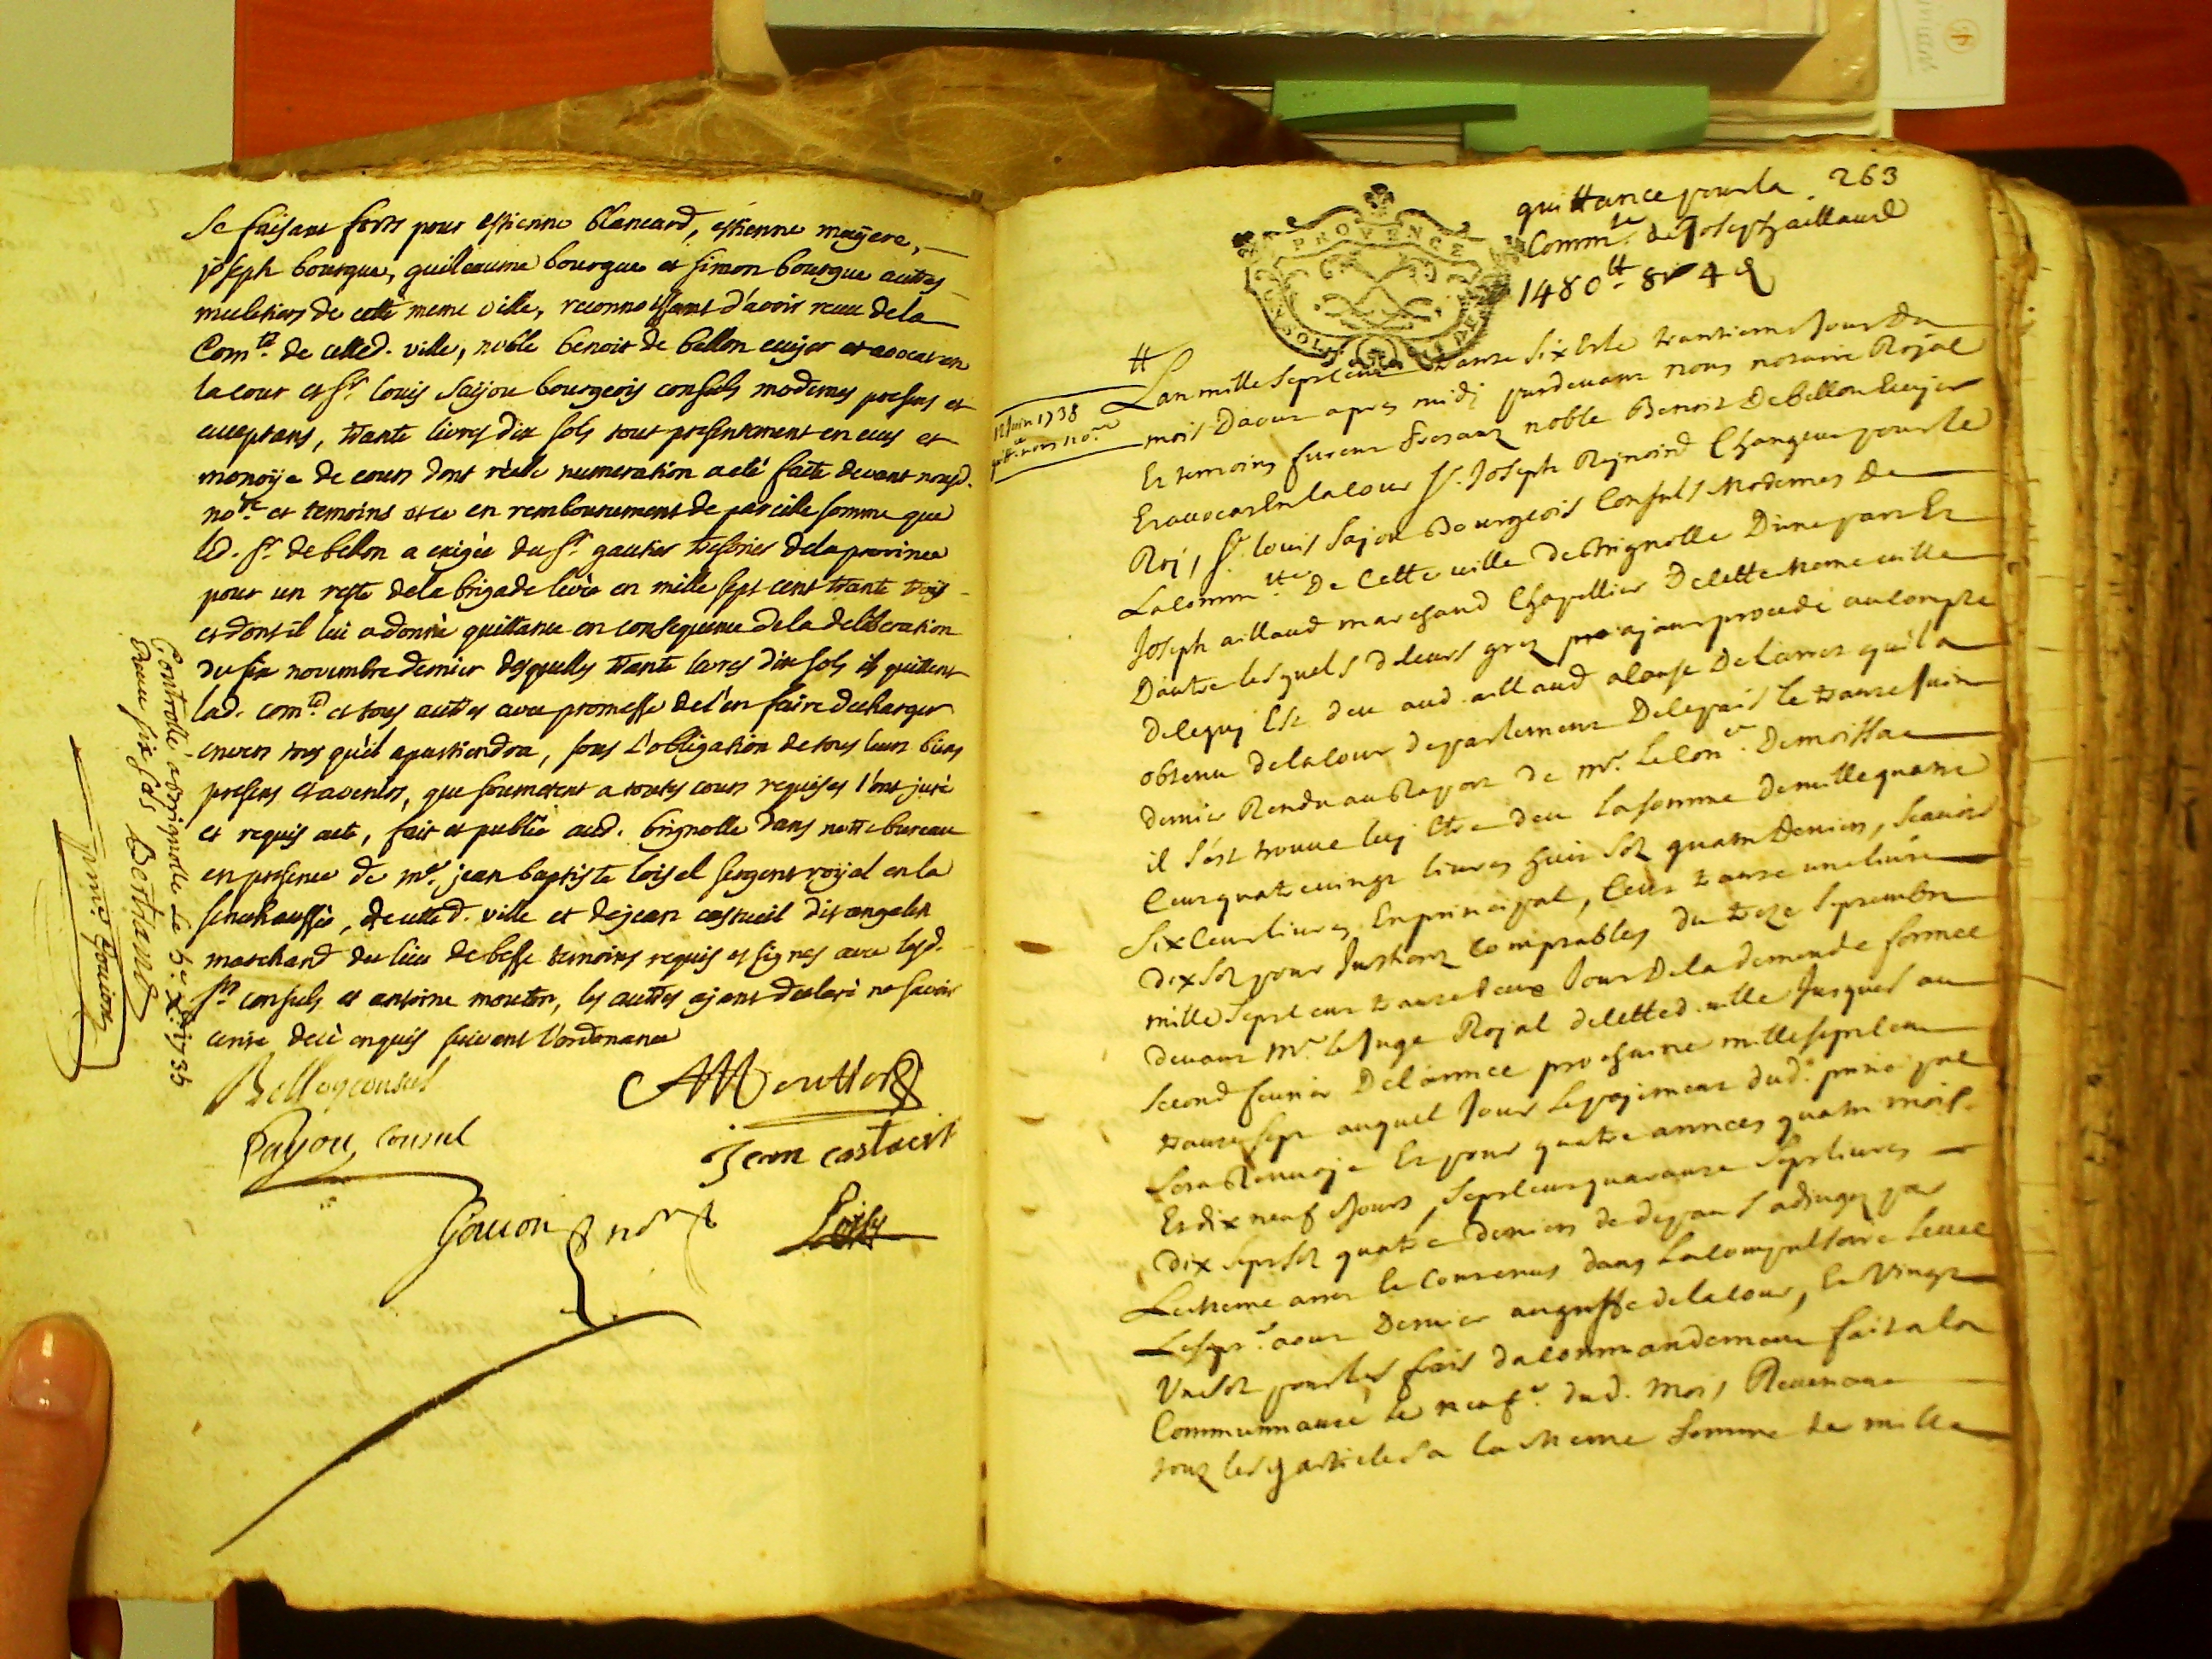 se faisant forts pour estienne blancard, estienne mayere,
joseph bourgue, guilleaume bourgue et simon bourgue autres
muletiers de cette meme ville, reconnoissant d'avoir receu de la
Comté. de celled. ville, noble benoit de bellon ecuyer et avocat en
la cour et sr. louis Sajou bourgeois consuls modernes presens et
acceptans, trante livres dix sols tout presentement en ecus et
monoÿe de cours dont réelle numeration a eté faite devant nousd.
nore et temoins et ce en remboursement de pareille somme que
led. sr. de bellon a exigée du sr. gautier tresorier de la province
pour un reste de la brigade levée en mille sept cent trante trois
et dont il lui a donné quittance en consequence de la deliberation
du six novembre dernier desquelles trante livres dix sols ils quittent
lad. comté et tous autres avec promesse de l'en faire decharger
envers tous qu'il apartiendra, sous l'obligation de tous leurs biens
presens et avenirs, que soumetent a toutes cours requises l'ont juré
et requis acte, fait et publié aud. brignolle dans notre bureau
en presence de me. jean baptiste loisel sergent royal en la
senechaussée, de celled. ville et de jean castueil
marchand du lieu de besse temoins requis et signes avec lesd.
srs consuls et antoine mouton, les autres ajant declaré ne savoir
ecrire de ce enquis suivant l'ordonnance
Bellon consul
AMoutton
Sajou, consul
Jean castueil
Goujon nore
Loisel
Controllé a Brignolle le 5e xbre 1735
Receu six sols Bertrand
263
quittance pour la
Commté. de Joseph aillaud
1480tt 8s 4d
PROVENCE
12 Juin 1738
nous nore
L'an mille sept cent trante six et le trantieme jour du
mois d'aout apres midi pardevant nous notaire Royal
et temoins furent presant noble Benoit De bellon Ecuyer
et avocat en la cour sr. Joseph Rejnoird Changeur pour le
Roj, sr. louis Sajou Bourgeois Consuls Modernes De
La commtté De Cette ville de Brignolle D'une part Et
Joseph aillaud marchand Chapellier De cette meme ville
D'autre lesquels de leurs grez ajant procedé au compte
de ce quj Est deu aud. aillaud a cause De l'arrest qu'il a
obtenu de la cour de parlement De ce pais le trante Juin
dernier Rendu au Raport de mr. Le Conr. De moissac
il s'est trouve luj Etre deu la somme de mille quatre
Cent quatre vingt livres huit sols quatre Deniers, sçavoir
six cent livres En principal, Cent trante une livre
dix sols pour Interets comptables du treze septembre
mille sept cent trante deux Jour De la demande formee
devant Mr. le Juge Royal de cetted. ville Jusques au
second fevrier De l'annee prochaine mille sept cent
trante sept auquel Jour Le pajement dud. principal
sera Renvoje Et pour quatre annees quatre mois
Et dix neuf Jours, sept cent quarante sept livres
dix sept sols quatre deniers de depans adjugez par
Le meme arrest Et Contenus dans La compulsoire levee
Le sepe. aout Dernier au greffe de la cour, Et Vingt
Un sols pour les frais du commandement fait a la
Communnauté le neufe. dud. Mois, Revenant
tous les articles a la meme somme de mille